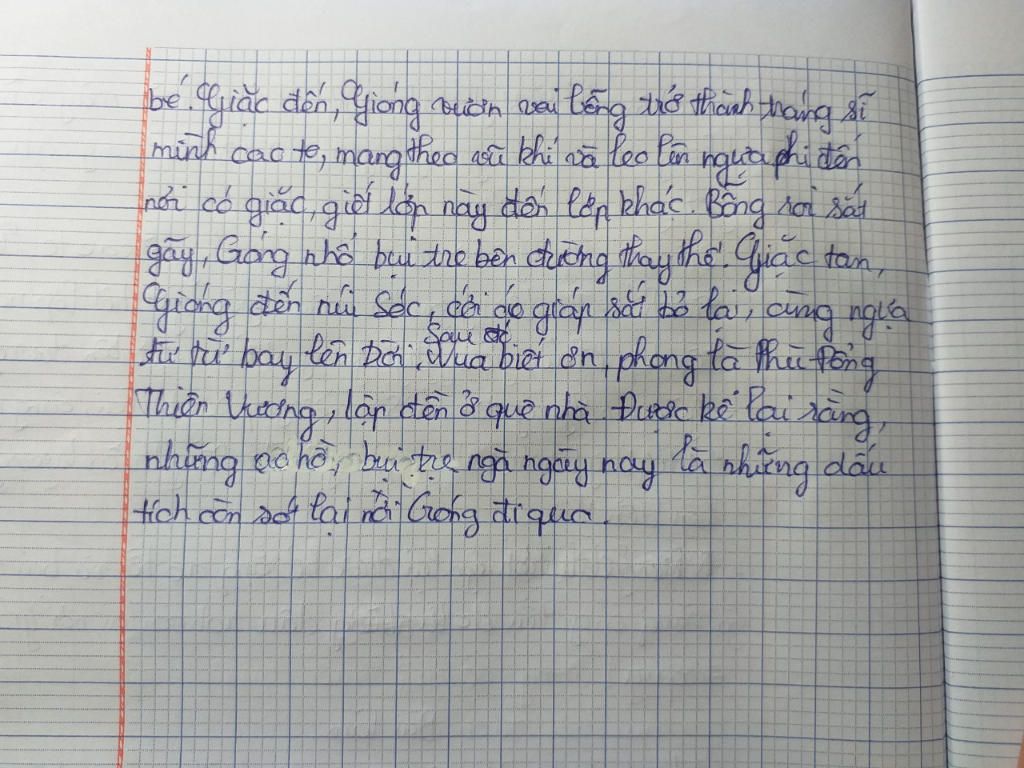 bé. Giặc đến, Gióng vươn vai bỗng trở thành tráng sĩ
mình cao to, mang theo vũ khí và leo lên ngựa phi đến
nơi có giặc, giết lớp này đến lớp khác. Bỗng roi sắt
gãy, Gióng nhổ bụi tre bên đường thay thế. Giặc tan,
Gióng đến núi Sóc, cởi áo giáp sắt bỏ lại, cùng ngựa
từ từ bay lên trời. Sau đó Vua biết ơn, phong là Phù Đổng
Thiên Vương, lập đền ở quê nhà. Được kể lại rằng,
những ao hồ, bụi tre ngà ngày nay là những dấu
tích còn sót lại nơi Gióng đi qua.